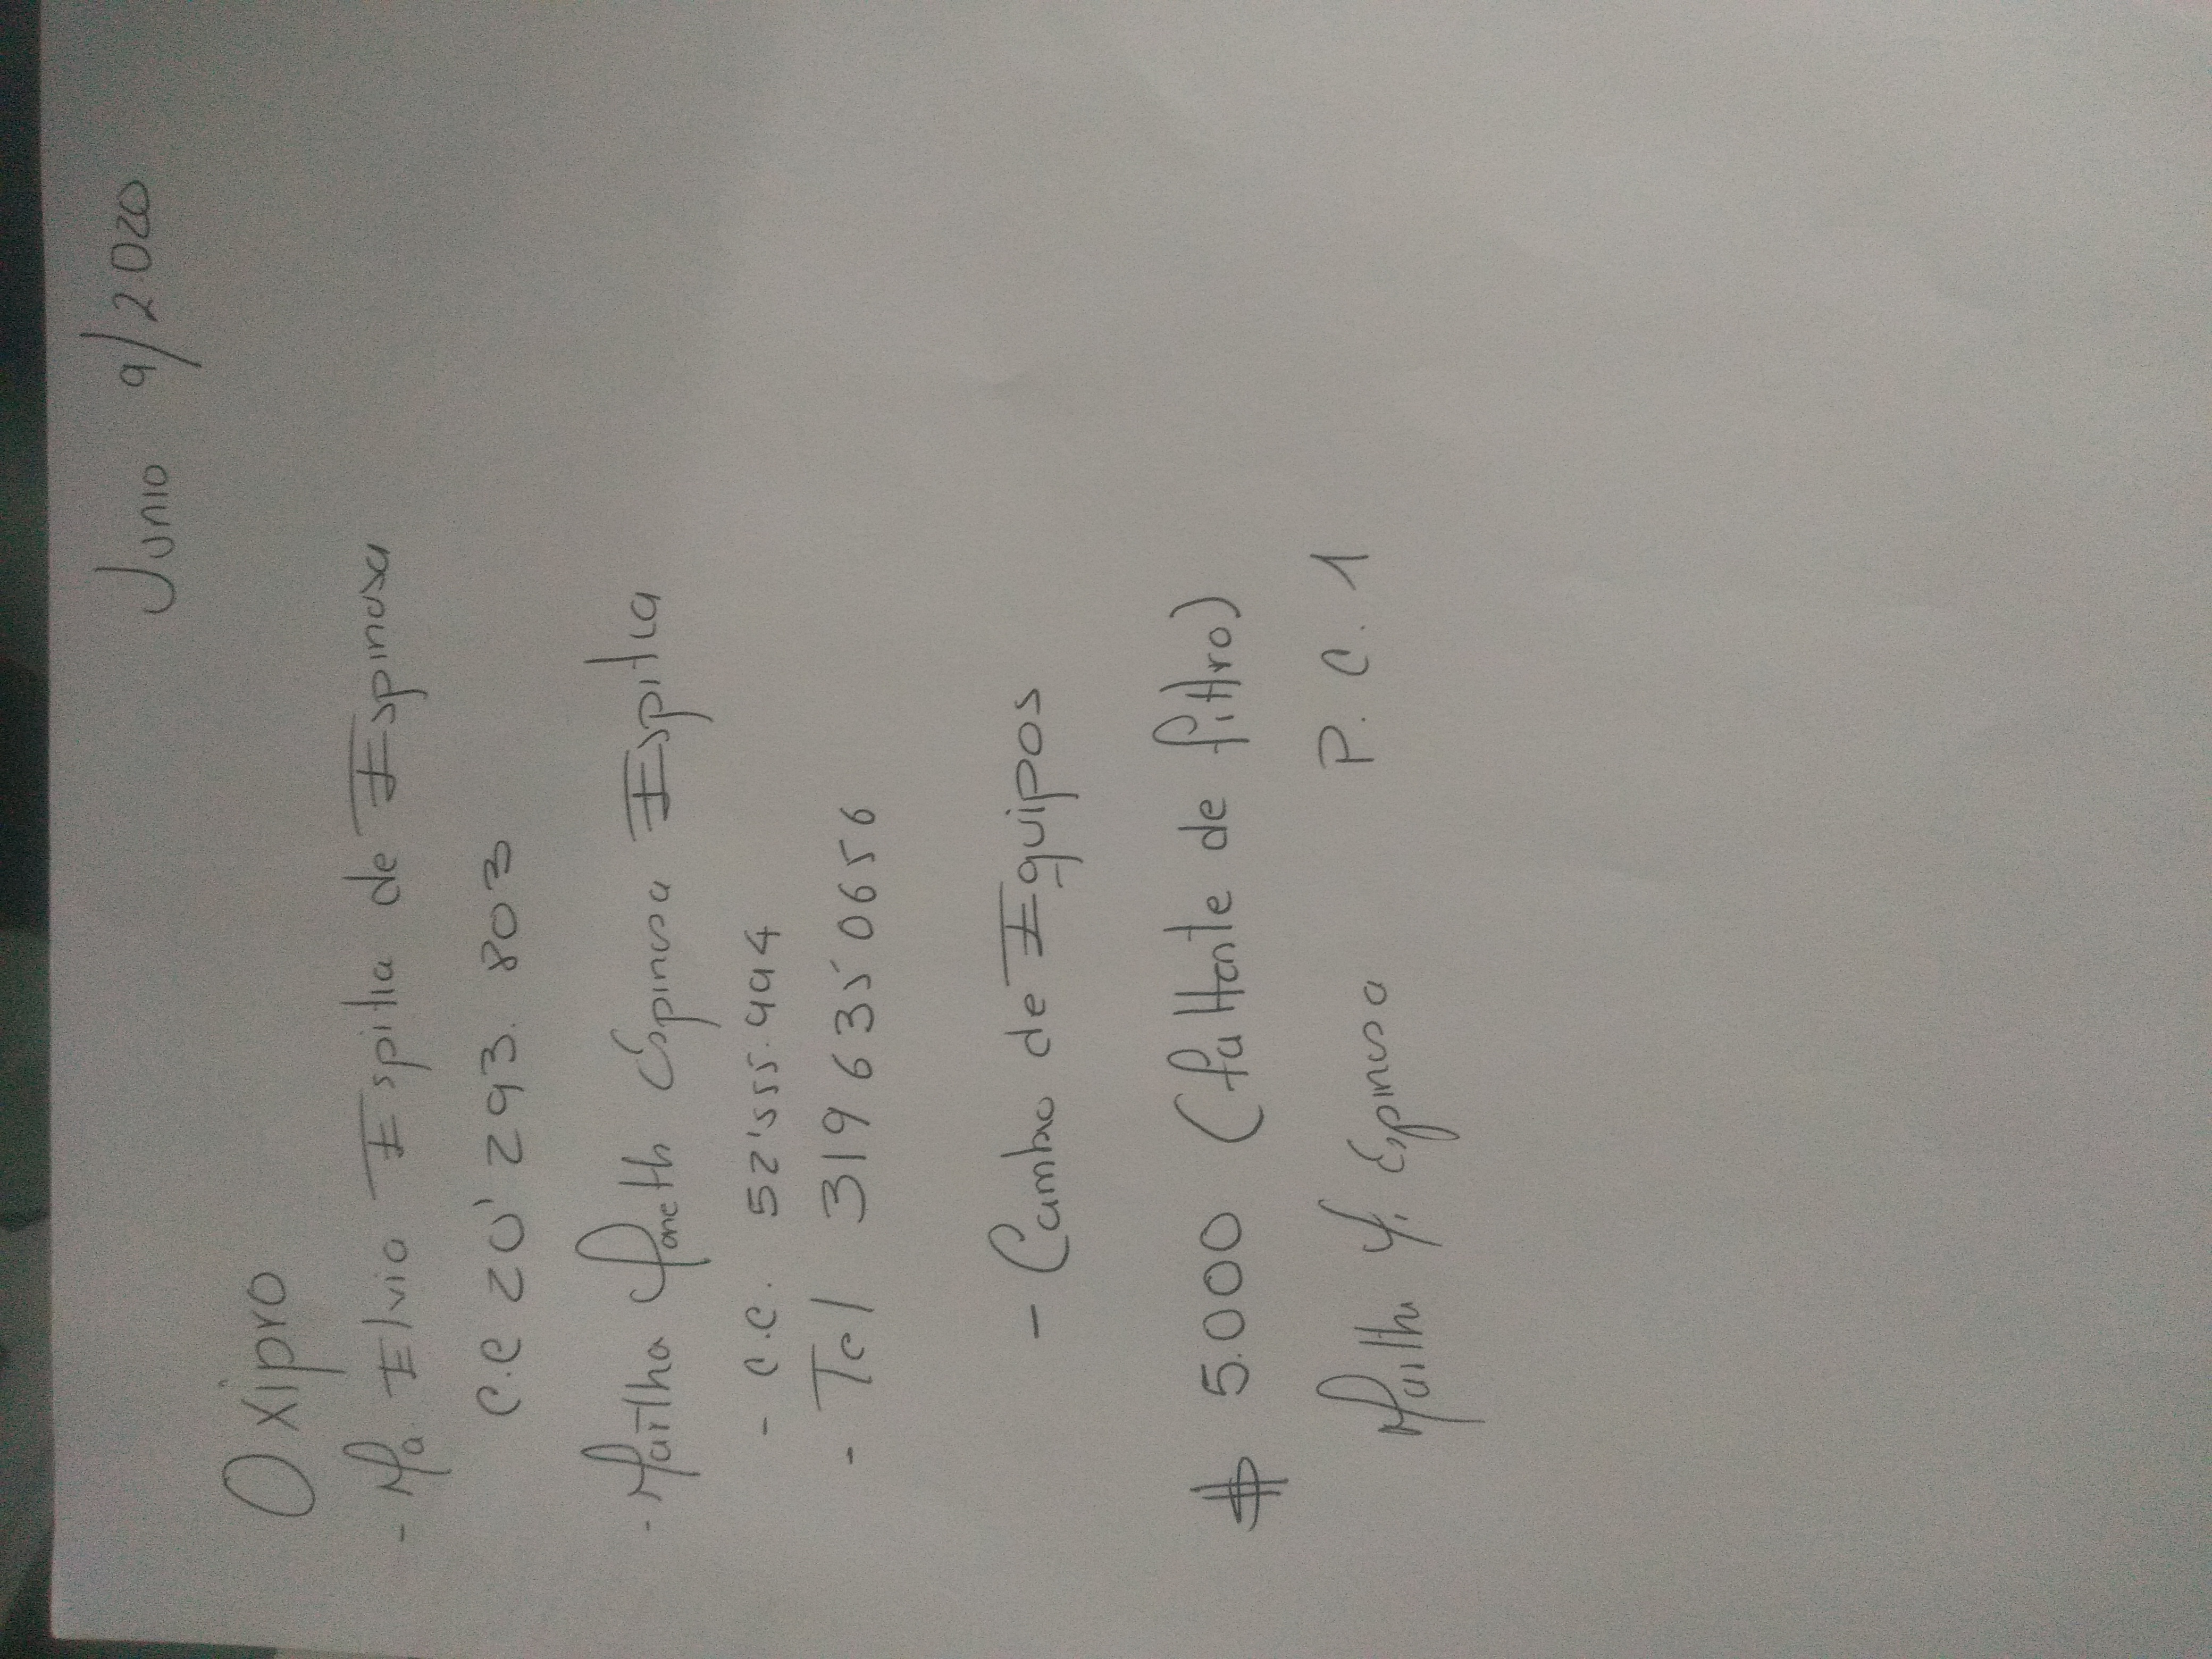 Junio 9/2020
Oxipro
- Ma Elvia Espitia de Espinosa
C.C 20'293.803
- Martha Yaneth Espinosa Espitia
- C.C. 52'555.494
- Tel 319 635 0656
- Cambio de Equipos
$ 5.000 (faltante de filtro)
Martha Y. Espinosa P.C.1